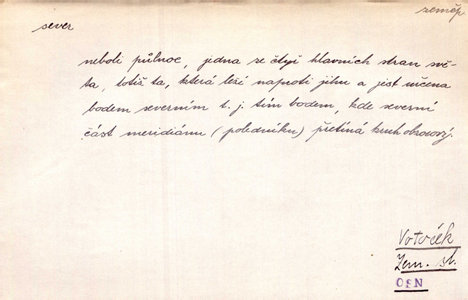 zeměp
sever
neboli půlnoc, jedna ze čtyř hlavních stran svě-
ta, totiž ta, která leží naproti jihu a jest určena
bodem severním t. j. tím bodem, kde severní
část meridiánu (poledníku) přetíná kruh obzorový.
Votoček
Zem. sl.
OSN